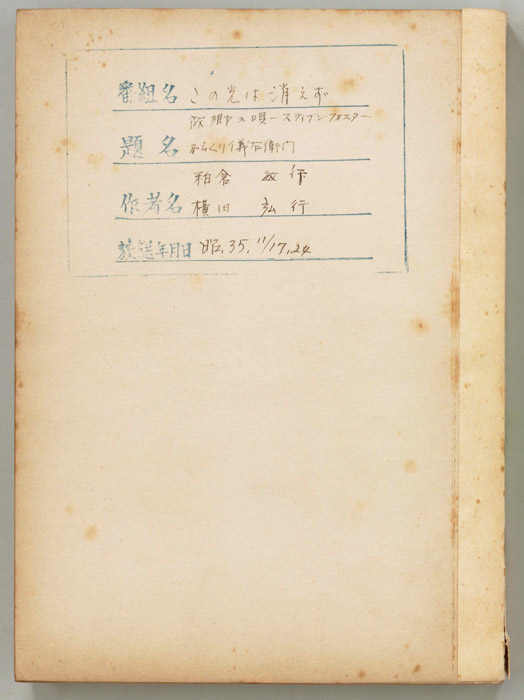 番組名 この光は消えず
故郷の唄ースティブンフォスター
題名 からくり儀右衛門
和倉 敏作
作者名 横田 弘行
放送年月日 昭.35.11/17,24